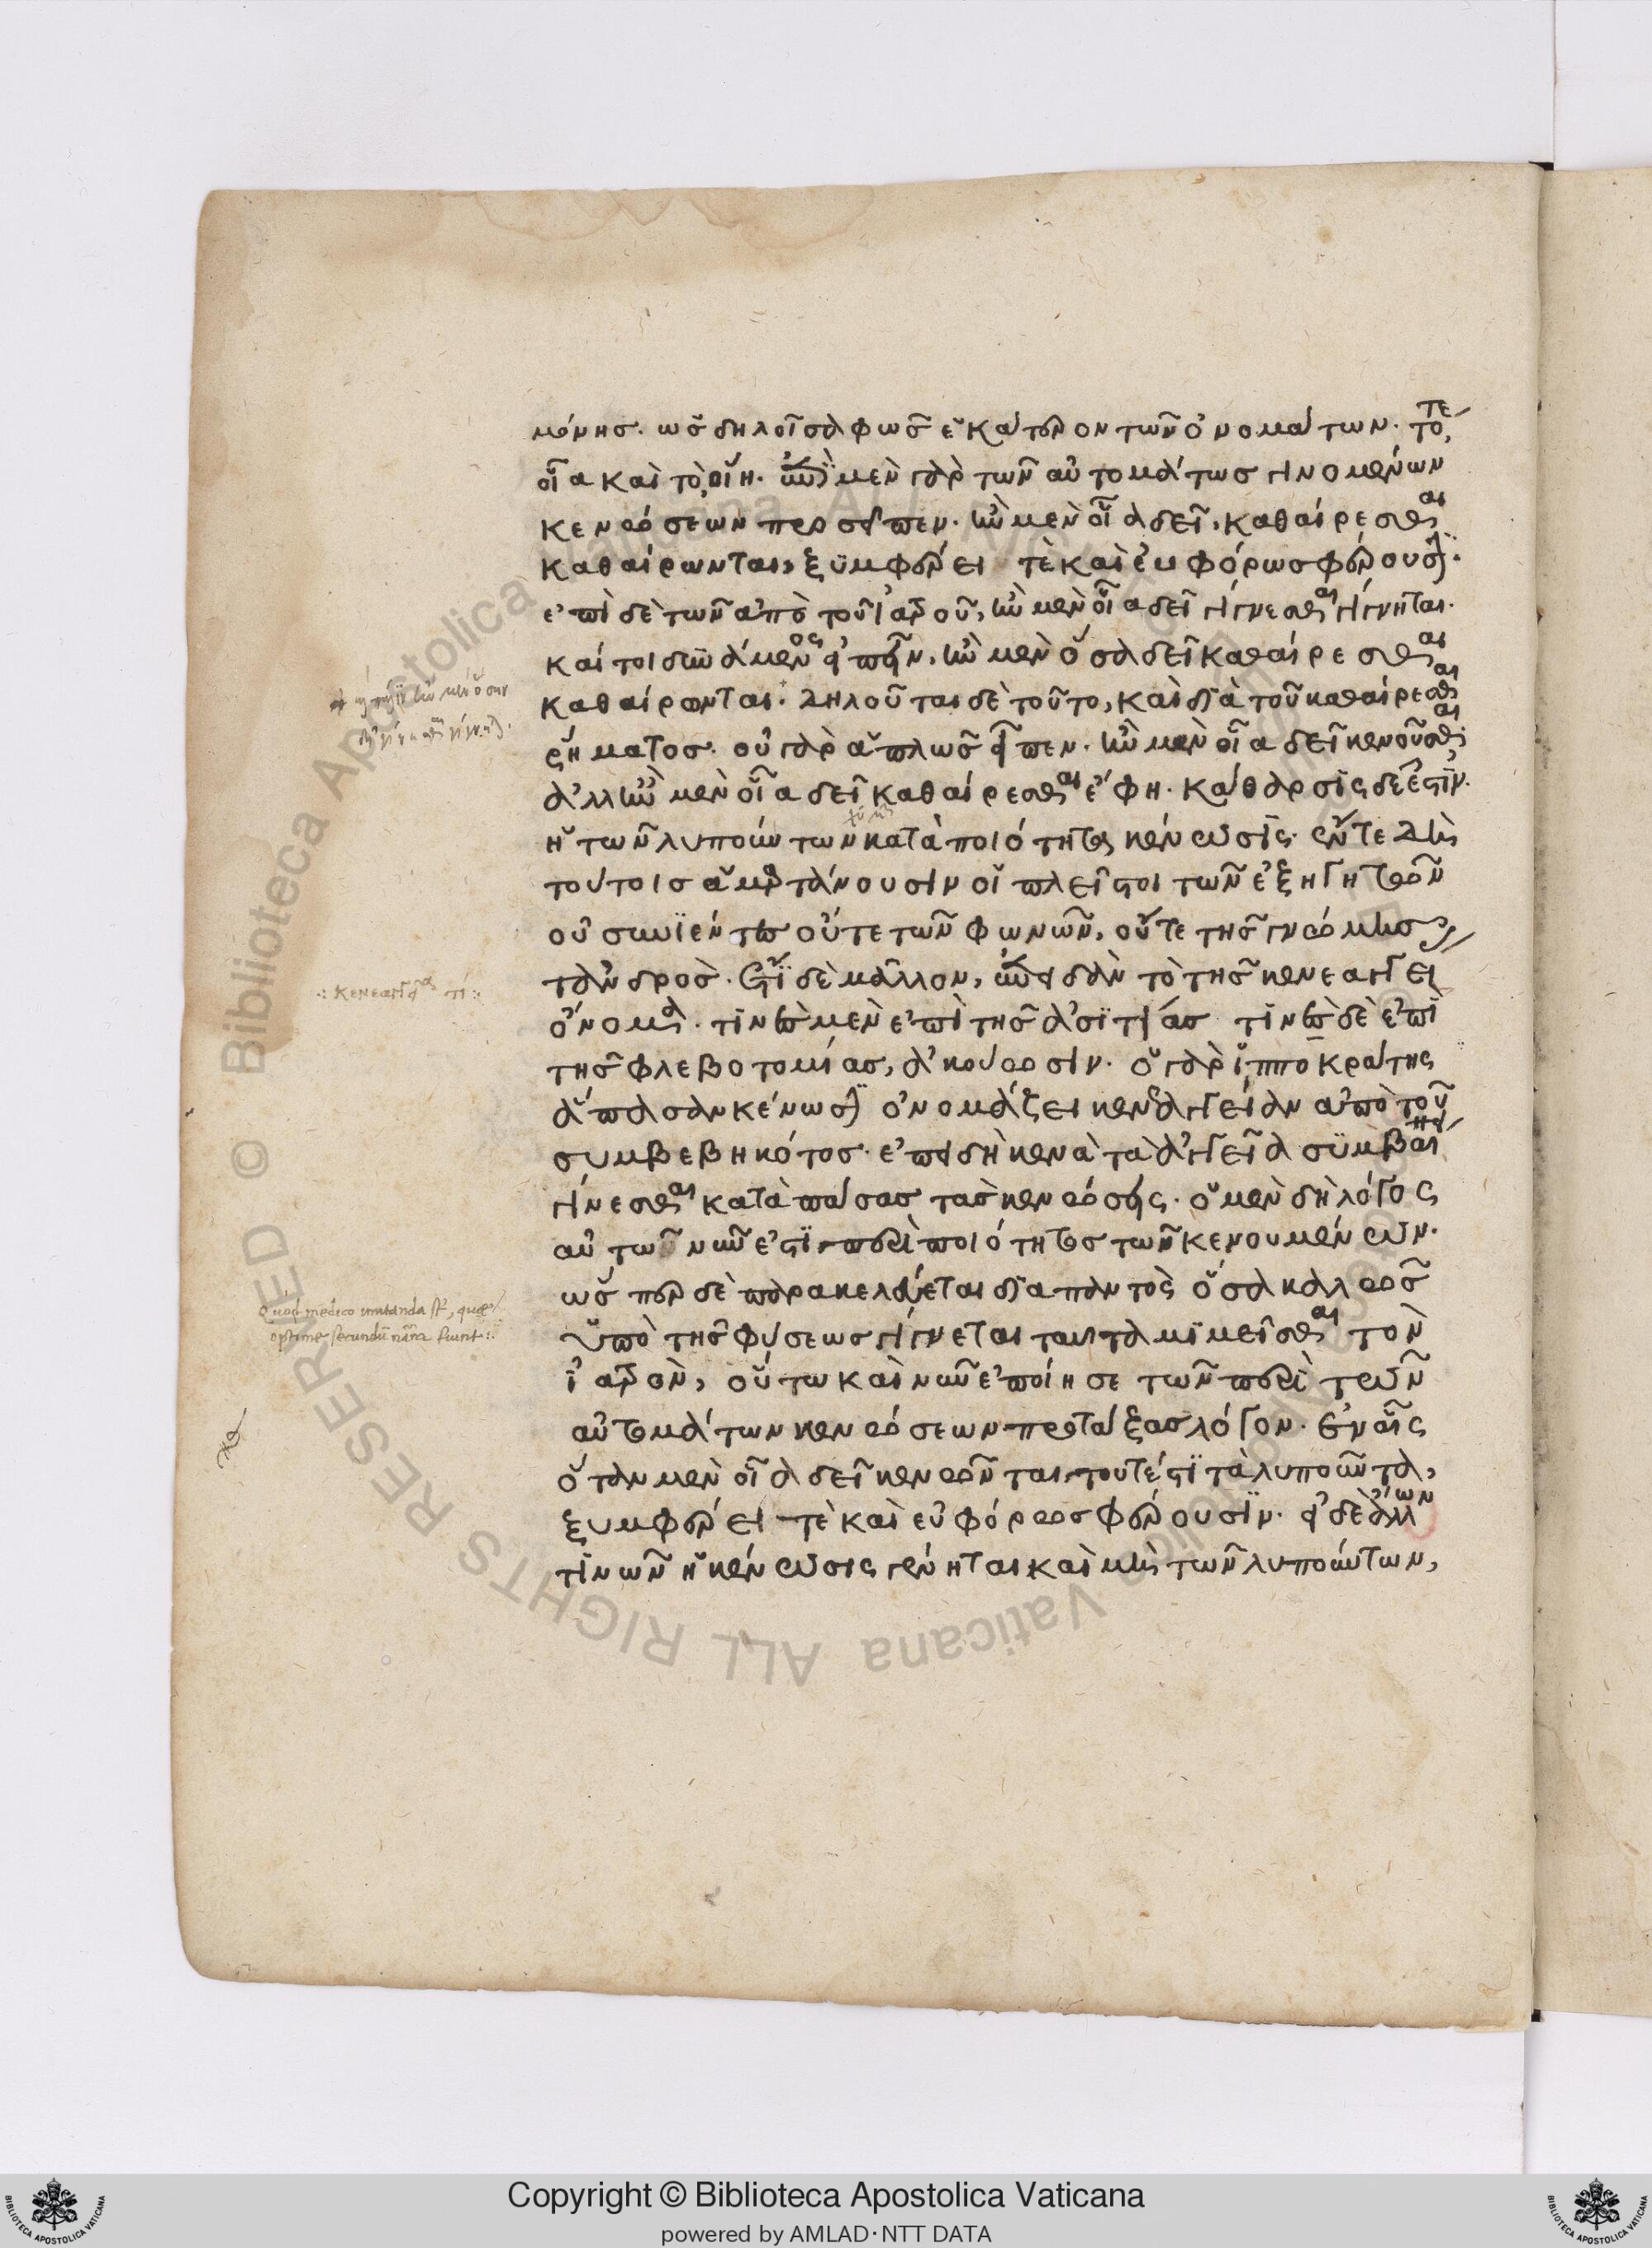 μόνης. ὡς δηλοῖ σαφῶς ἑκάτερον τῶν ὀνομάτων. τό, τε
οἷα καὶ τὸ, οἵη. ἐπὶ μὲν γὰρ τῶν αὐτομάτως γινομένων
κενώσεων προσεῖπεν. ἢν μὲν οἷα δεῖ, καθαίρεσθαι
καθαίρωνται, ξυμφέρει τὲ καὶ εὐφόρως φέρουσι.
ἐπὶ δὲ τῶν ἀπὸ τοῦ ἰατροῦ, ἢν μὲν οἷα δεῖ γίγνεσθαι γίγνηται.
καίτοι δυνάμενος εἰπεῖν, ἢν μὲν ὅσα δεῖ καθαίρεσθαι
καθαίρωνται. δηλοῦται δὲ τοῦτο, καὶ διὰ τοῦ καθαίρεσθαι
ῥήματος. οὐ γὰρ ἁπλῶς εἶπεν. ἢν μὲν οἷα δεῖ κενοῦσθαι,
ἀλλ' ἢν μὲν οἷα δεῖ καθαίρεσθαι ἔφη. κάθαρσις δέ ἐστιν.
ἡ τῶν λυπούντων κατὰ ποιότητα κένωσις.
τούτοις ἁμαρτάνουσιν οἱ πλεῖστοι τῶν ἐξηγητῶν
οὐ συνιέντες οὔτε τῶν φωνῶν, οὔτε τῆς γνώμης
τἀνδρός. ἔτι δὲ μᾶλλον, ἐπειδὰν τὸ τῆς κενεαγγεί
ὄνομα. τινὲς μὲν ἐπὶ τῆς ἀσιτίας τινὲς δὲ ἐπὶ
τῆς φλεβοτομίας, ἀκούωσιν. ὁ γὰρ ἱπποκράτης
ἅπασαν κένωσι ὀνομάζει κενεαγγείαν ἀπὸ τοῦ
συμβεβηκότος. ἐπειδὴ κενὰ τὰ ἀγγεῖα συμβαίνει
γίνεσθαι κατὰ πάσας τὰς κενώσεις. ὁ μὲν δὴ λόγος
αὐτῶ νῦν ἐστὶ περὶ ποιότητος τῶν κενουμένων.
ὥσπερ δὲ παρακελεύεται διαπαντὸς ὅσα καλῶς
ὑπὸ τῆς φύσεως γίγνεται ταῦτα μιμεῖσθαι τὸν
ἰατρὸν, οὕτω καὶ νῦν ἐποίησε τῶν περὶ τῶν
αὐτομάτων κενώσεων προτάξας λόγον. ἐν αἷς
ὅταν μὲν οἷα δεῖ κενῶνται, τουτέστι τὰ λυποῦντα,
ξυμφέρει τὲ καὶ εὐφόρως φέρουσιν. εἰ δὲ ἄλλων
τινῶν ἡ κένωσις γένηται καὶ μὴ τῶν λυπούντων,
κενεαγγεία τί
Quod medico imitanda st, quae
optime secundũ nãra fiunt:.